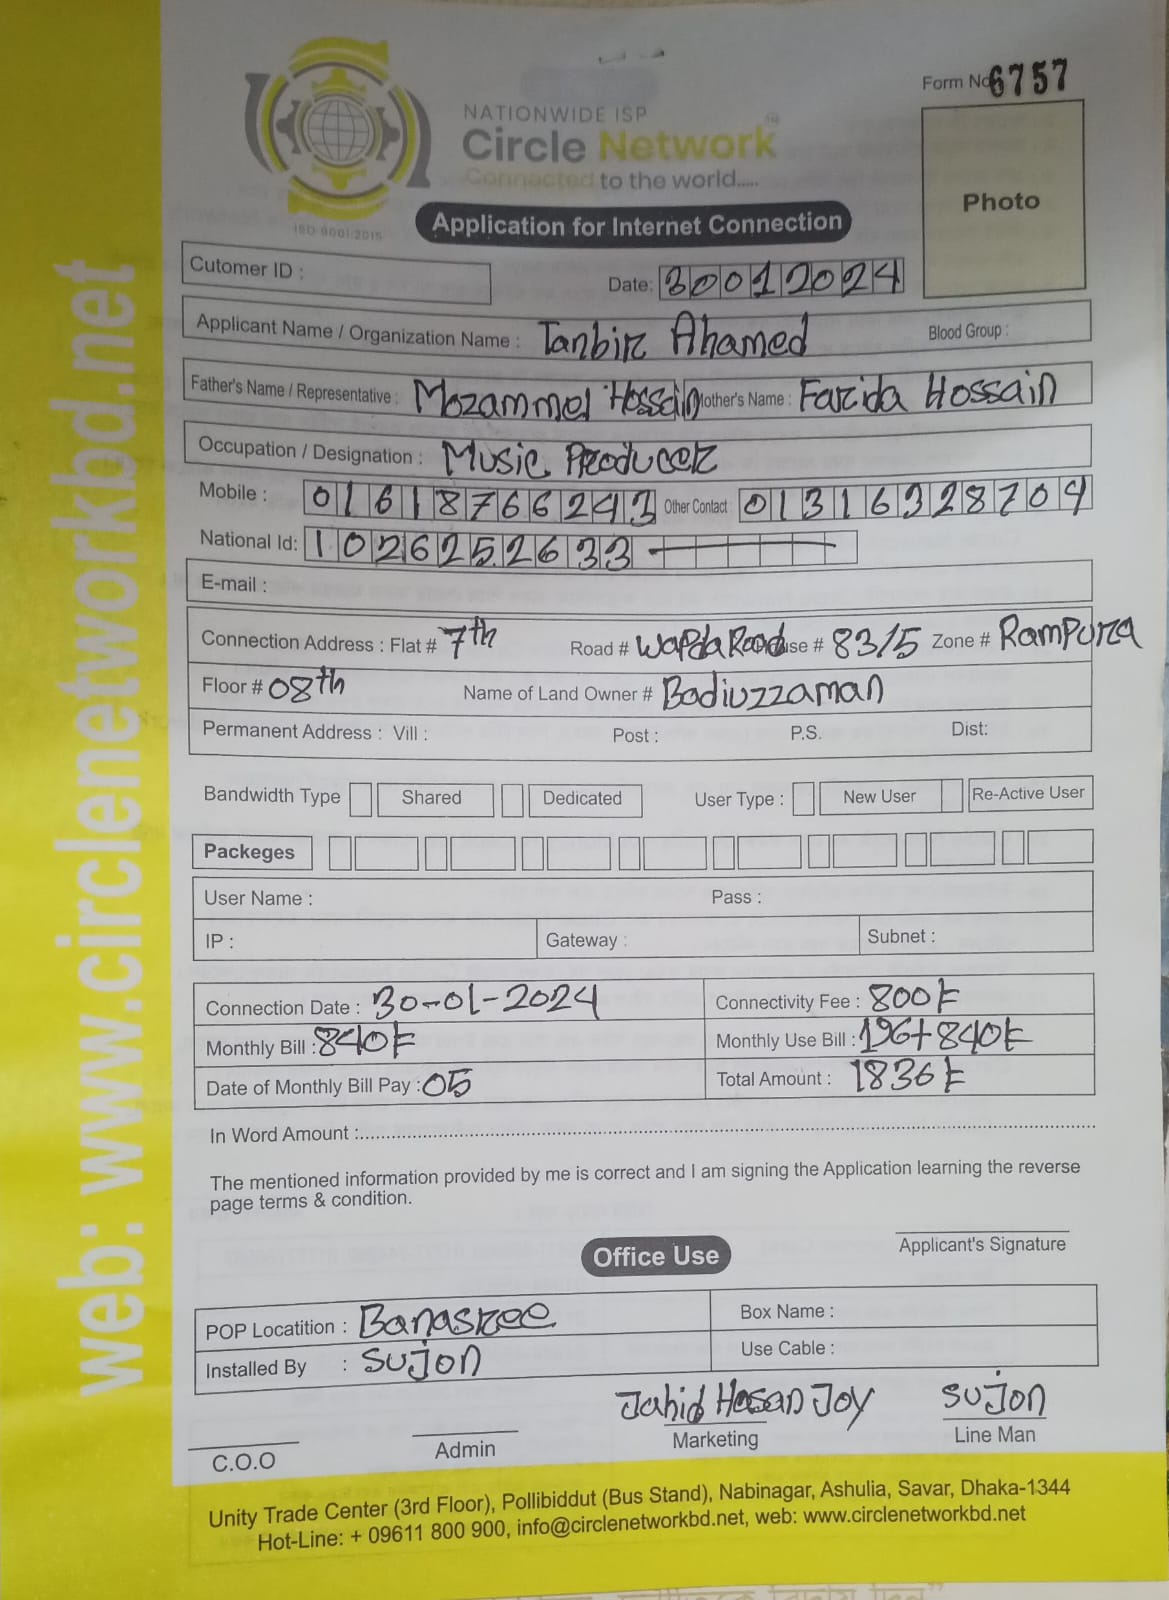 web: www.circlenetworkbd.net
Form No 6757
NATIONWIDE ISP
Circle Network
Connected to the world.....
ISO 9001:2015
Application for Internet Connection
Photo
Cutomer ID :
Date: 30012024
Applicant Name / Organization Name : Tanbir Ahamed Blood Group :
Father's Name / Representative : Mozammel Hossain Mother's Name : Farida Hossain
Occupation / Designation : Music Producer
Mobile : 01618766243 Other Contact 01316328704
National Id: 1026252633
E-mail :
Connection Address : Flat # 7th Road # Wapda Road House # 83/5 Zone # Rampura
Floor # 08th Name of Land Owner # Badiuzzaman
Permanent Address : Vill : Post : P.S. Dist:
Bandwidth Type Shared Dedicated User Type : New User Re-Active User
Packeges
User Name : Pass :
IP : Gateway : Subnet :
Connection Date : 30-01-2024 Connectivity Fee : 800৳
Monthly Bill : 840৳ Monthly Use Bill : 196+840৳
Date of Monthly Bill Pay : 05 Total Amount : 1836৳
In Word Amount :
The mentioned information provided by me is correct and I am signing the Application learning the reverse
page terms & condition.
Applicant's Signature
Office Use
POP Locatition : Banasree Box Name :
Installed By : Sujon Use Cable :
Jahid Hasan Joy Sujon
C.O.O Admin Marketing Line Man
Unity Trade Center (3rd Floor), Pollibiddut (Bus Stand), Nabinagar, Ashulia, Savar, Dhaka-1344
Hot-Line: + 09611 800 900, info@circlenetworkbd.net, web: www.circlenetworkbd.net